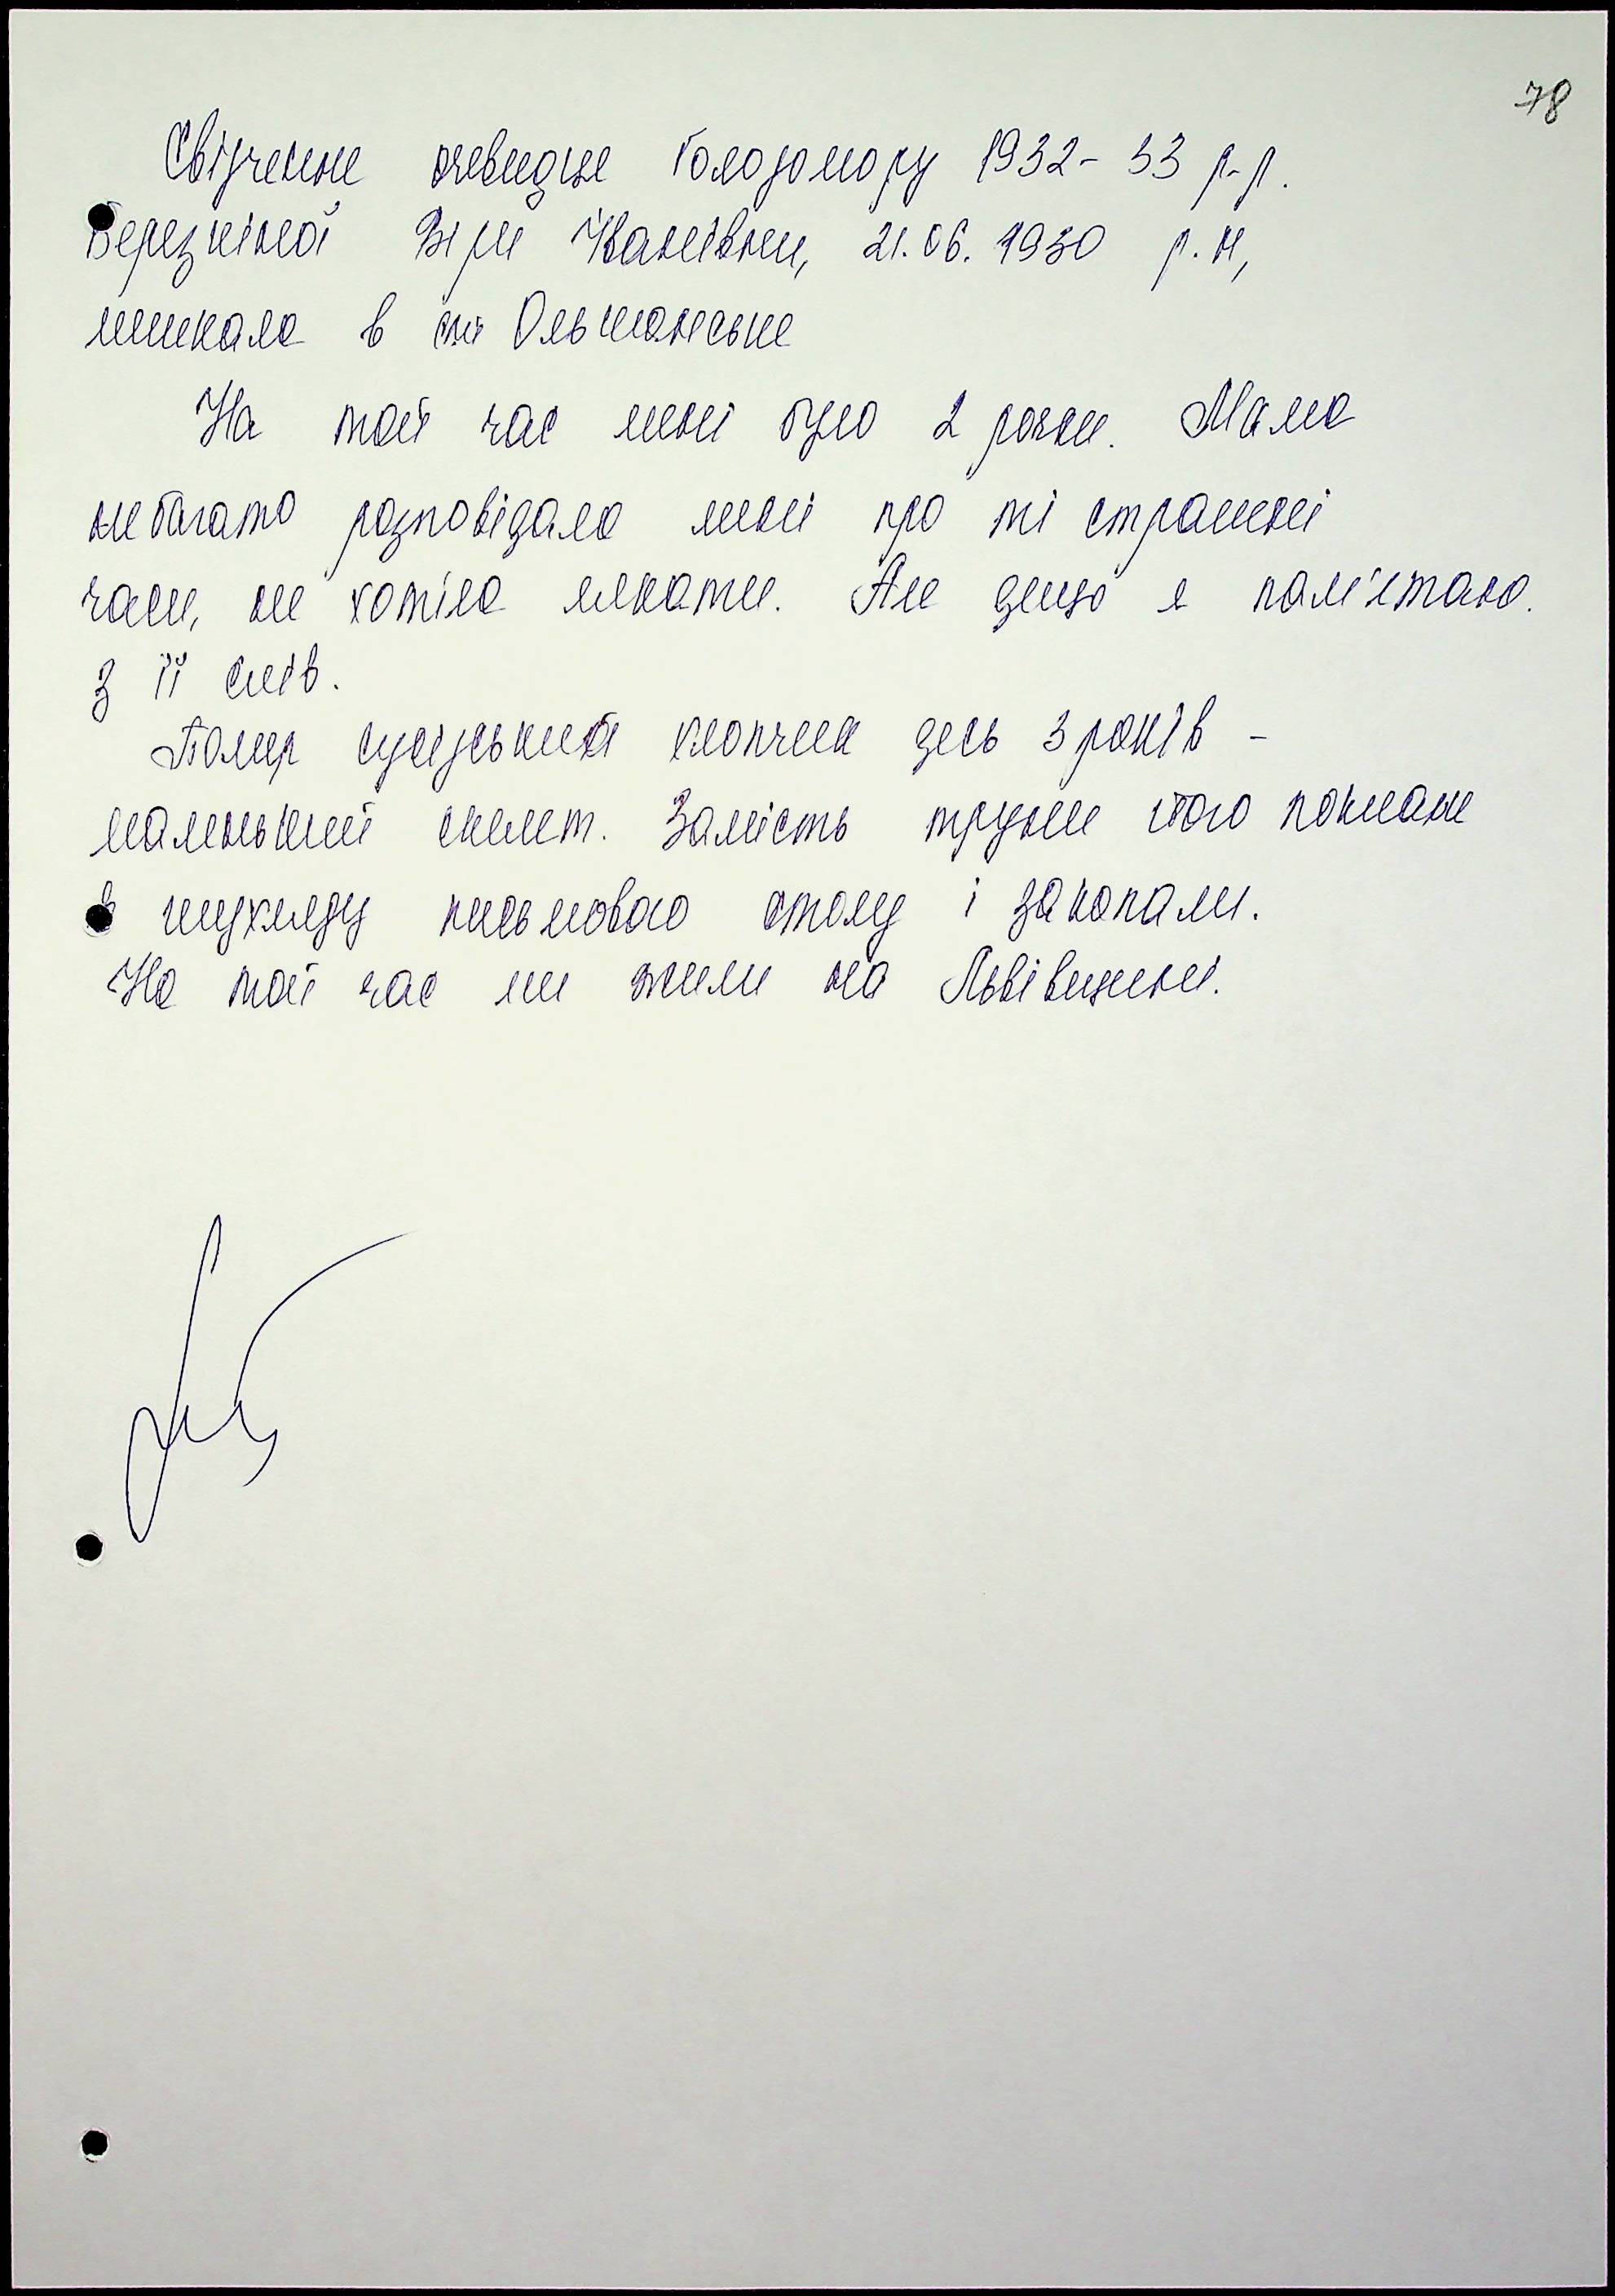 78
Свідчення очевидця Голодомору 1932- 33 р-р.
Березкіної Віри Іванівни, 21.06.1930 р.н,
мешкала в смт Ольшанське
На той час мені було 2 рочки. Мама
небагато розповідала мені про ті страшні
часи, не хотіла лякати. Але дещо я пам'ятаю.
з її слів.
Помер сусідський хлопчик десь 3 років -
маленький скелет. Замість труни його поклали
в шухляду письмового столу і закопали.
На той час ми жили на Львівщині.